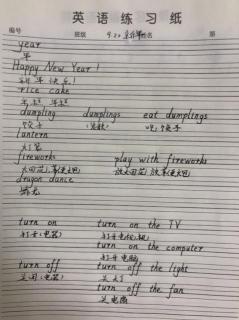 英语练习纸
编号 班级 9.20 姓名
year
年
Happy New Year!
新年快乐!
rice cake
年糕
dumpling dumplings eat dumplings
饺子 (复数) 吃饺子
lantern
灯笼
fireworks play with fireworks
dragon dance
舞龙
turn on turn on the TV
打开(电器) 打开电视机
turn on the computer
打开电脑
turn off turn off the light
关闭(电器) 关灯
turn off the fan
关电扇